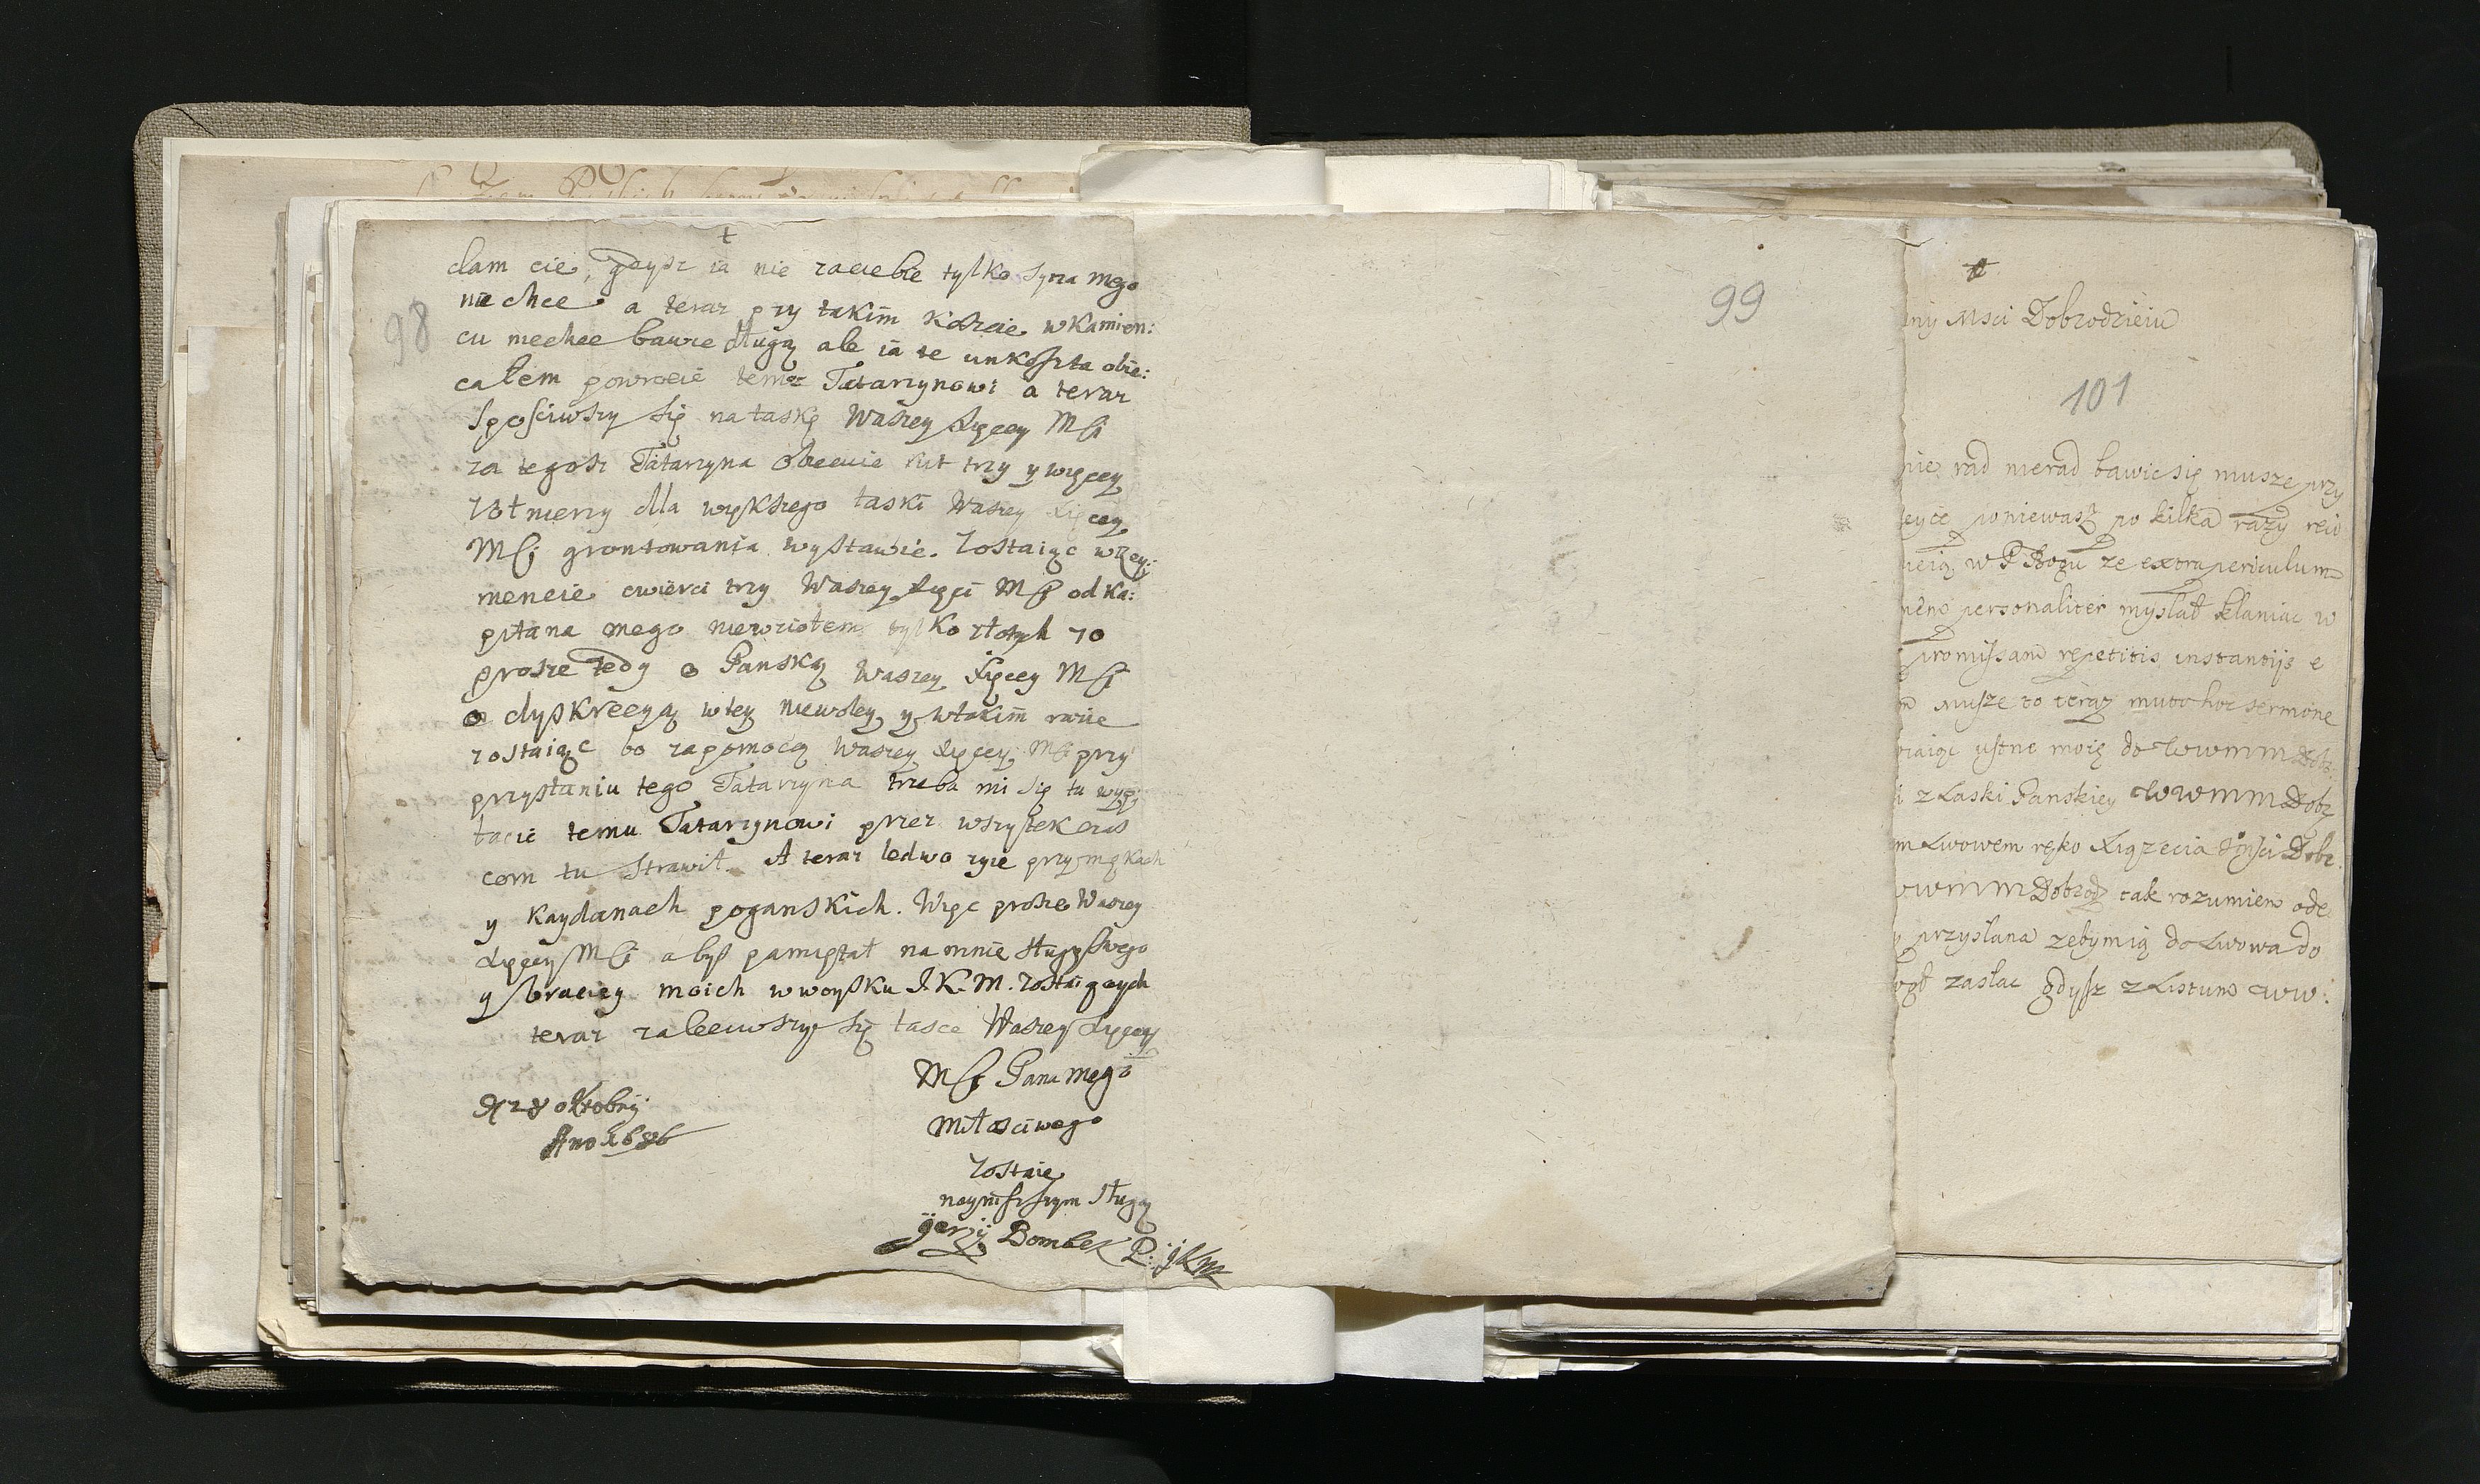 98
dam cie, gdysz ia nie zaciebie tylko syna mego
nie chce a teraz przy takim koszcie w Kamien:
cu niechce bawic długą ale ia te unkoszta obie:
całem powrocic temu Tatarzynowi a teraz
sposciwszy się na łaskę Waszey Xięcey Msci
za tegosz Tatarzyna Obecuie rut trzy y więcey
żołnierzy dla większego łaski Waszey Xięcey
Msci grontowania wystawic. Zostaiąc w Rey:
mencie cwierci trzy Waszey Xięci Msci od Ka:
pitana mego niewziołem tylko złotych 70
prosze tedy o Panską Waszey Xięcey Msci
o dyskrecyą w tey niewoley y w takim razie
zostaiąc bo zapomocą Waszey Xięcey Msci przy
przysłaniu tego Tatarzyna trzeba mi się tu wyp:
łacic temu Tatarzynowi przez wszystek czas
com tu strawił. A teraz ledwo zyie przy mękach
y kaydanach poganskich. Więc prosze Waszey
Xięcey Msci a bys pamiętał na mnie sługę swego
y braciey moich w woysku J. K. M. zostaiących
teraz zaleciwszy się łasce Waszey Xięcey
Msci Pana mego
Miłosciwego
Zostaię
nayniszszym sługą
Jerzÿ Bombek P: JKM
D 28 oktobrij
Ano 1686
99
Msci Dobrodzieiu
101
rad nierad bawic się musze przy
poniewasz po kilka razy
w P Bogu ze extra periculum
personaliter myslał kłaniac w
promissam repetitis instantijs e
Musze to teraz muto hoc sermone
ustne moię do WWMM Dob:
z Łaski Panskiey WWMM Dobr
Lwowem ręko Xiązecia Jmsci Dobr.
WWMM Dobrodz tak rozumiem ode
przysłana zebymią do Lwowa do
zasłac gdysz z Listum WW: